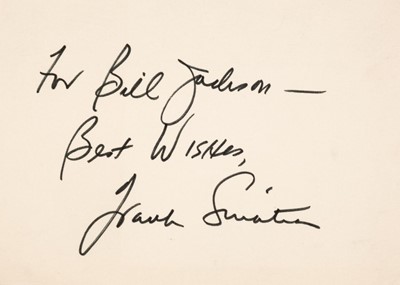 For Bill Jackson —
Best Wishes,
Frank Sinatra